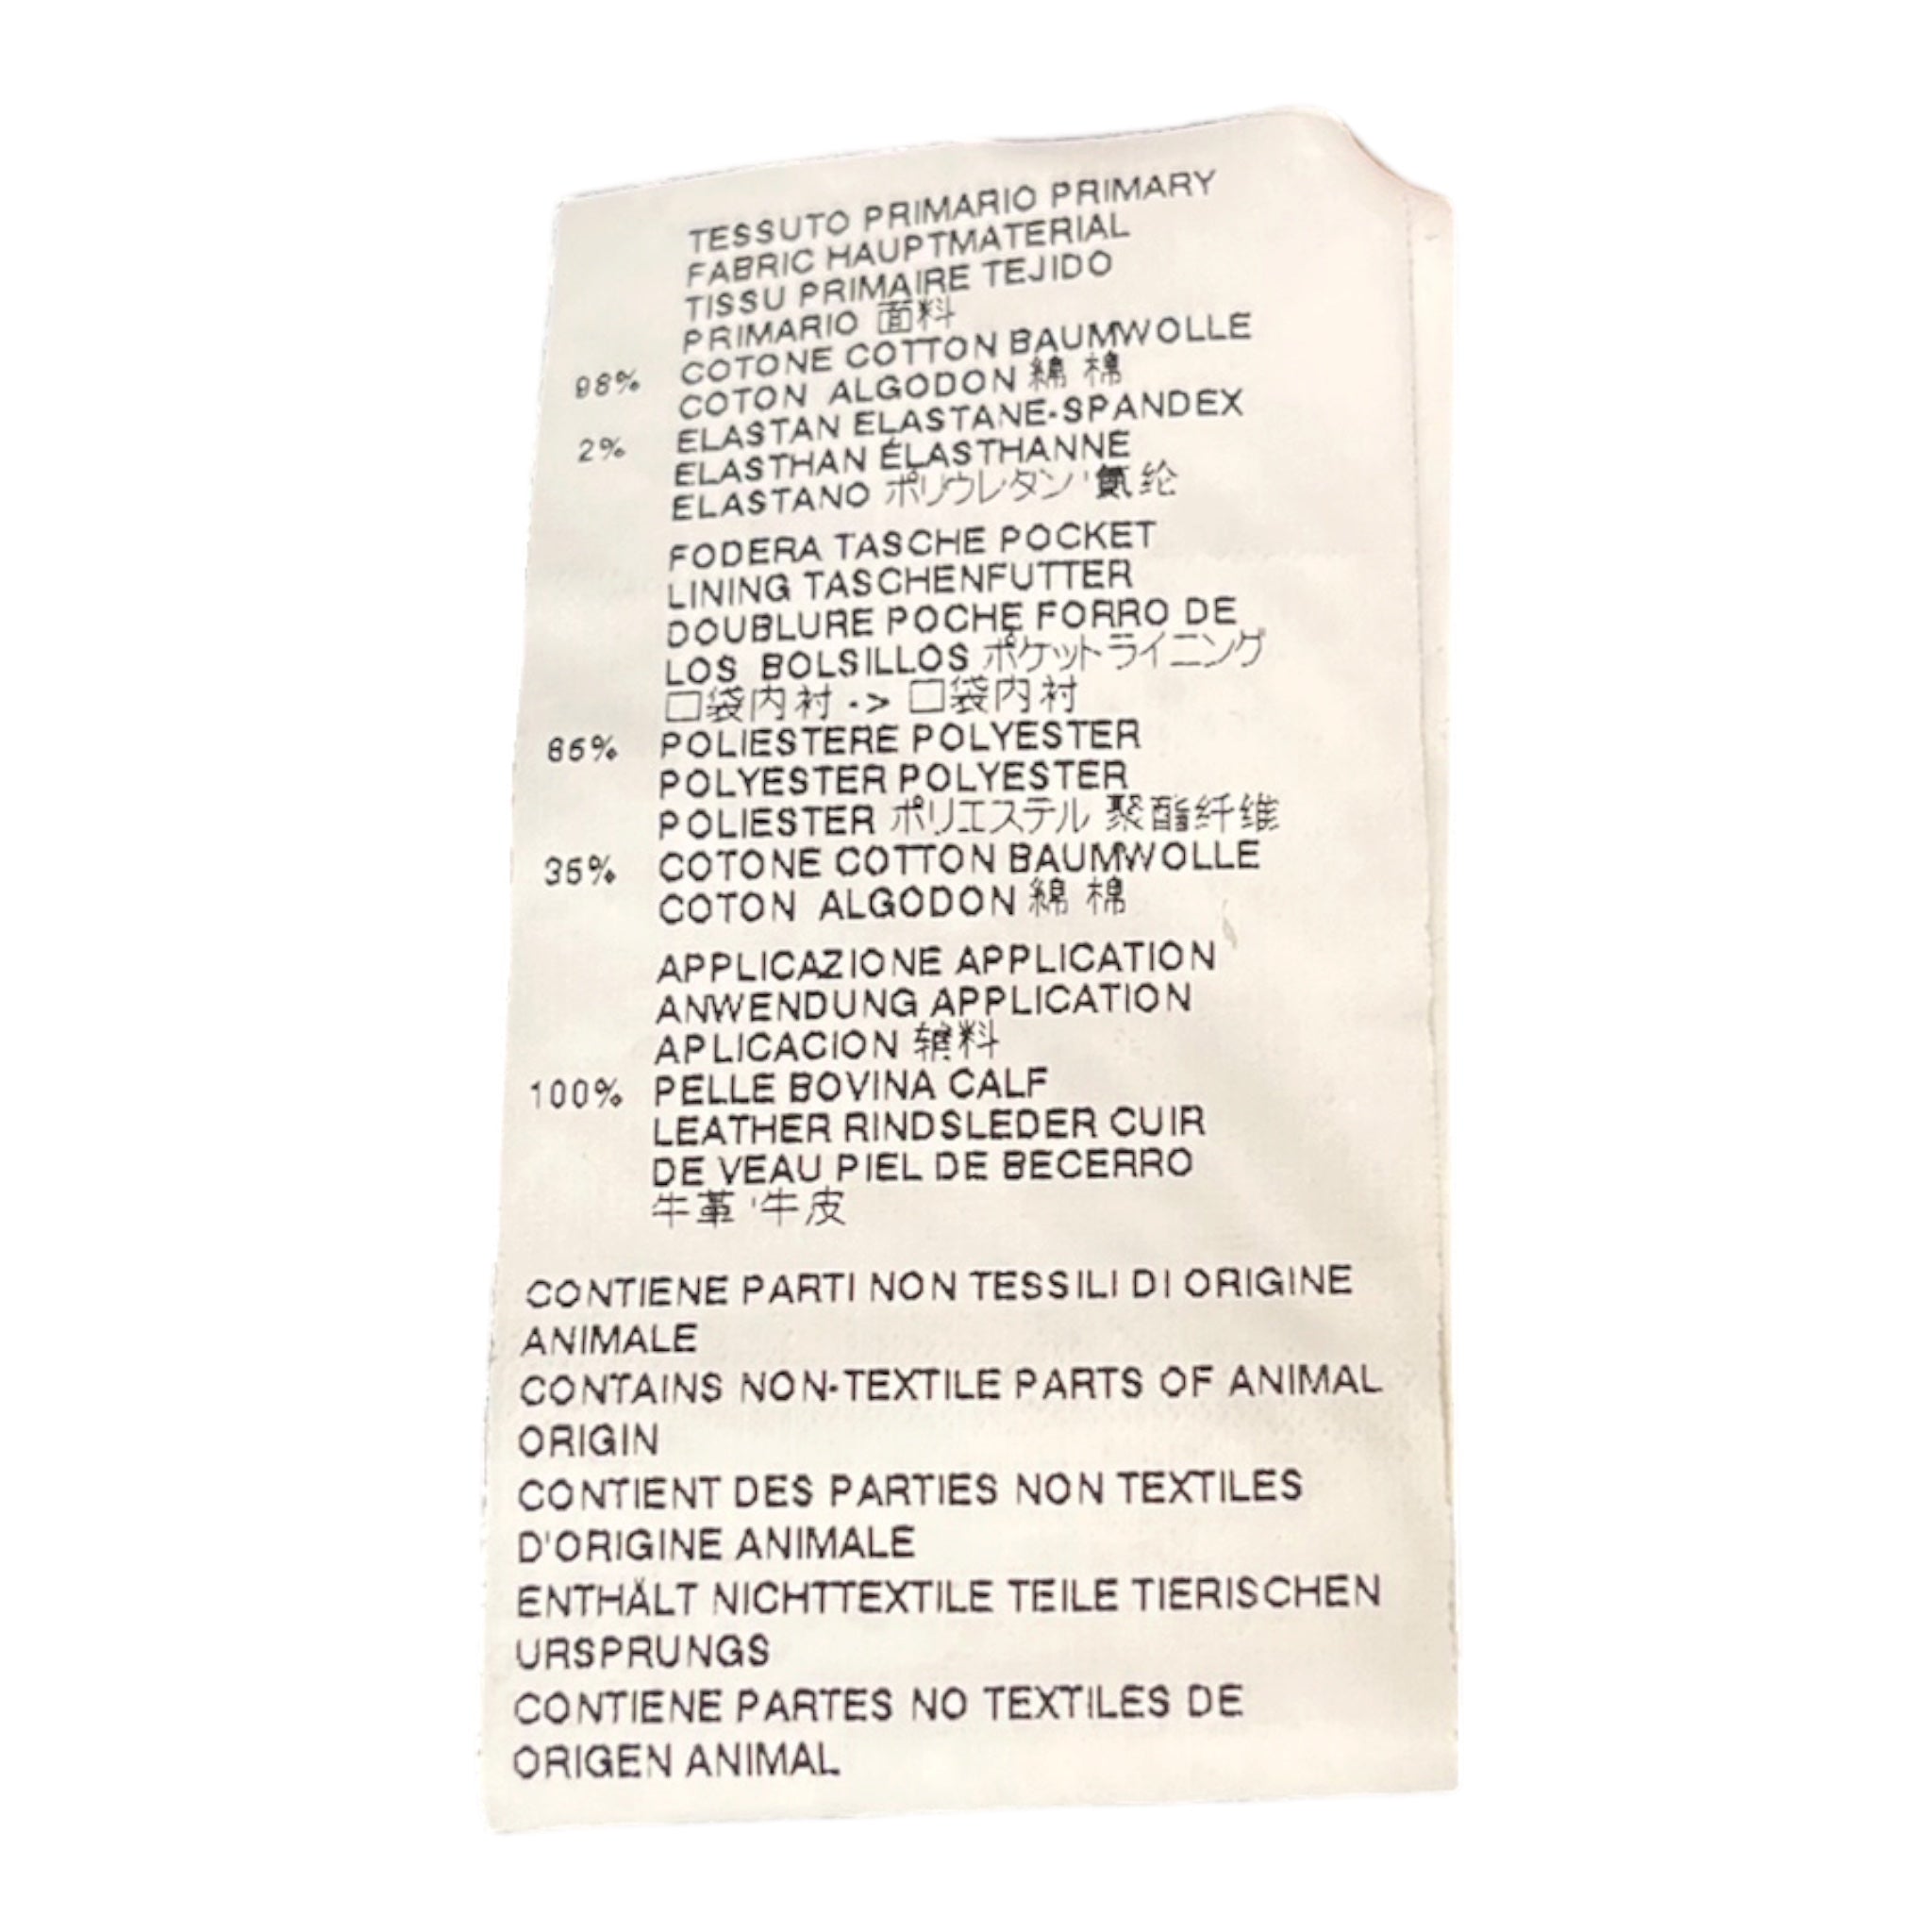 TESSUTO PRIMARIO PRIMARY
FABRIC HAUPTMATERIAL
TISSU PRIMAIRE TEJIDO
PRIMARIO 面料
98% COTONE COTTON BAUMWOLLE
COTON ALGODON 綿 棉
2% ELASTAN ELASTANE-SPANDEX
ELASTHAN ÉLASTHANNE
ELASTANO ポリウレタン ' 氨纶
FODERA TASCHE POCKET
LINING TASCHENFUTTER
DOUBLURE POCHE FORRO DE
LOS BOLSILLOS ポケットライニング
口袋内衬 -> 口袋内衬
65% POLIESTERE POLYESTER
POLYESTER POLYESTER
POLIESTER ポリエステル 聚酯纤维
35% COTONE COTTON BAUMWOLLE
COTON ALGODON 綿 棉
APPLICAZIONE APPLICATION
ANWENDUNG APPLICATION
APLICACION 辅料
100% PELLE BOVINA CALF
LEATHER RINDSLEDER CUIR
DE VEAU PIEL DE BECERRO
牛革 ' 牛皮
CONTIENE PARTI NON TESSILI DI ORIGINE
ANIMALE
CONTAINS NON-TEXTILE PARTS OF ANIMAL
ORIGIN
CONTIENT DES PARTIES NON TEXTILES
D'ORIGINE ANIMALE
ENTHÄLT NICHTTEXTILE TEILE TIERISCHEN
URSPRUNGS
CONTIENE PARTES NO TEXTILES DE
ORIGEN ANIMAL